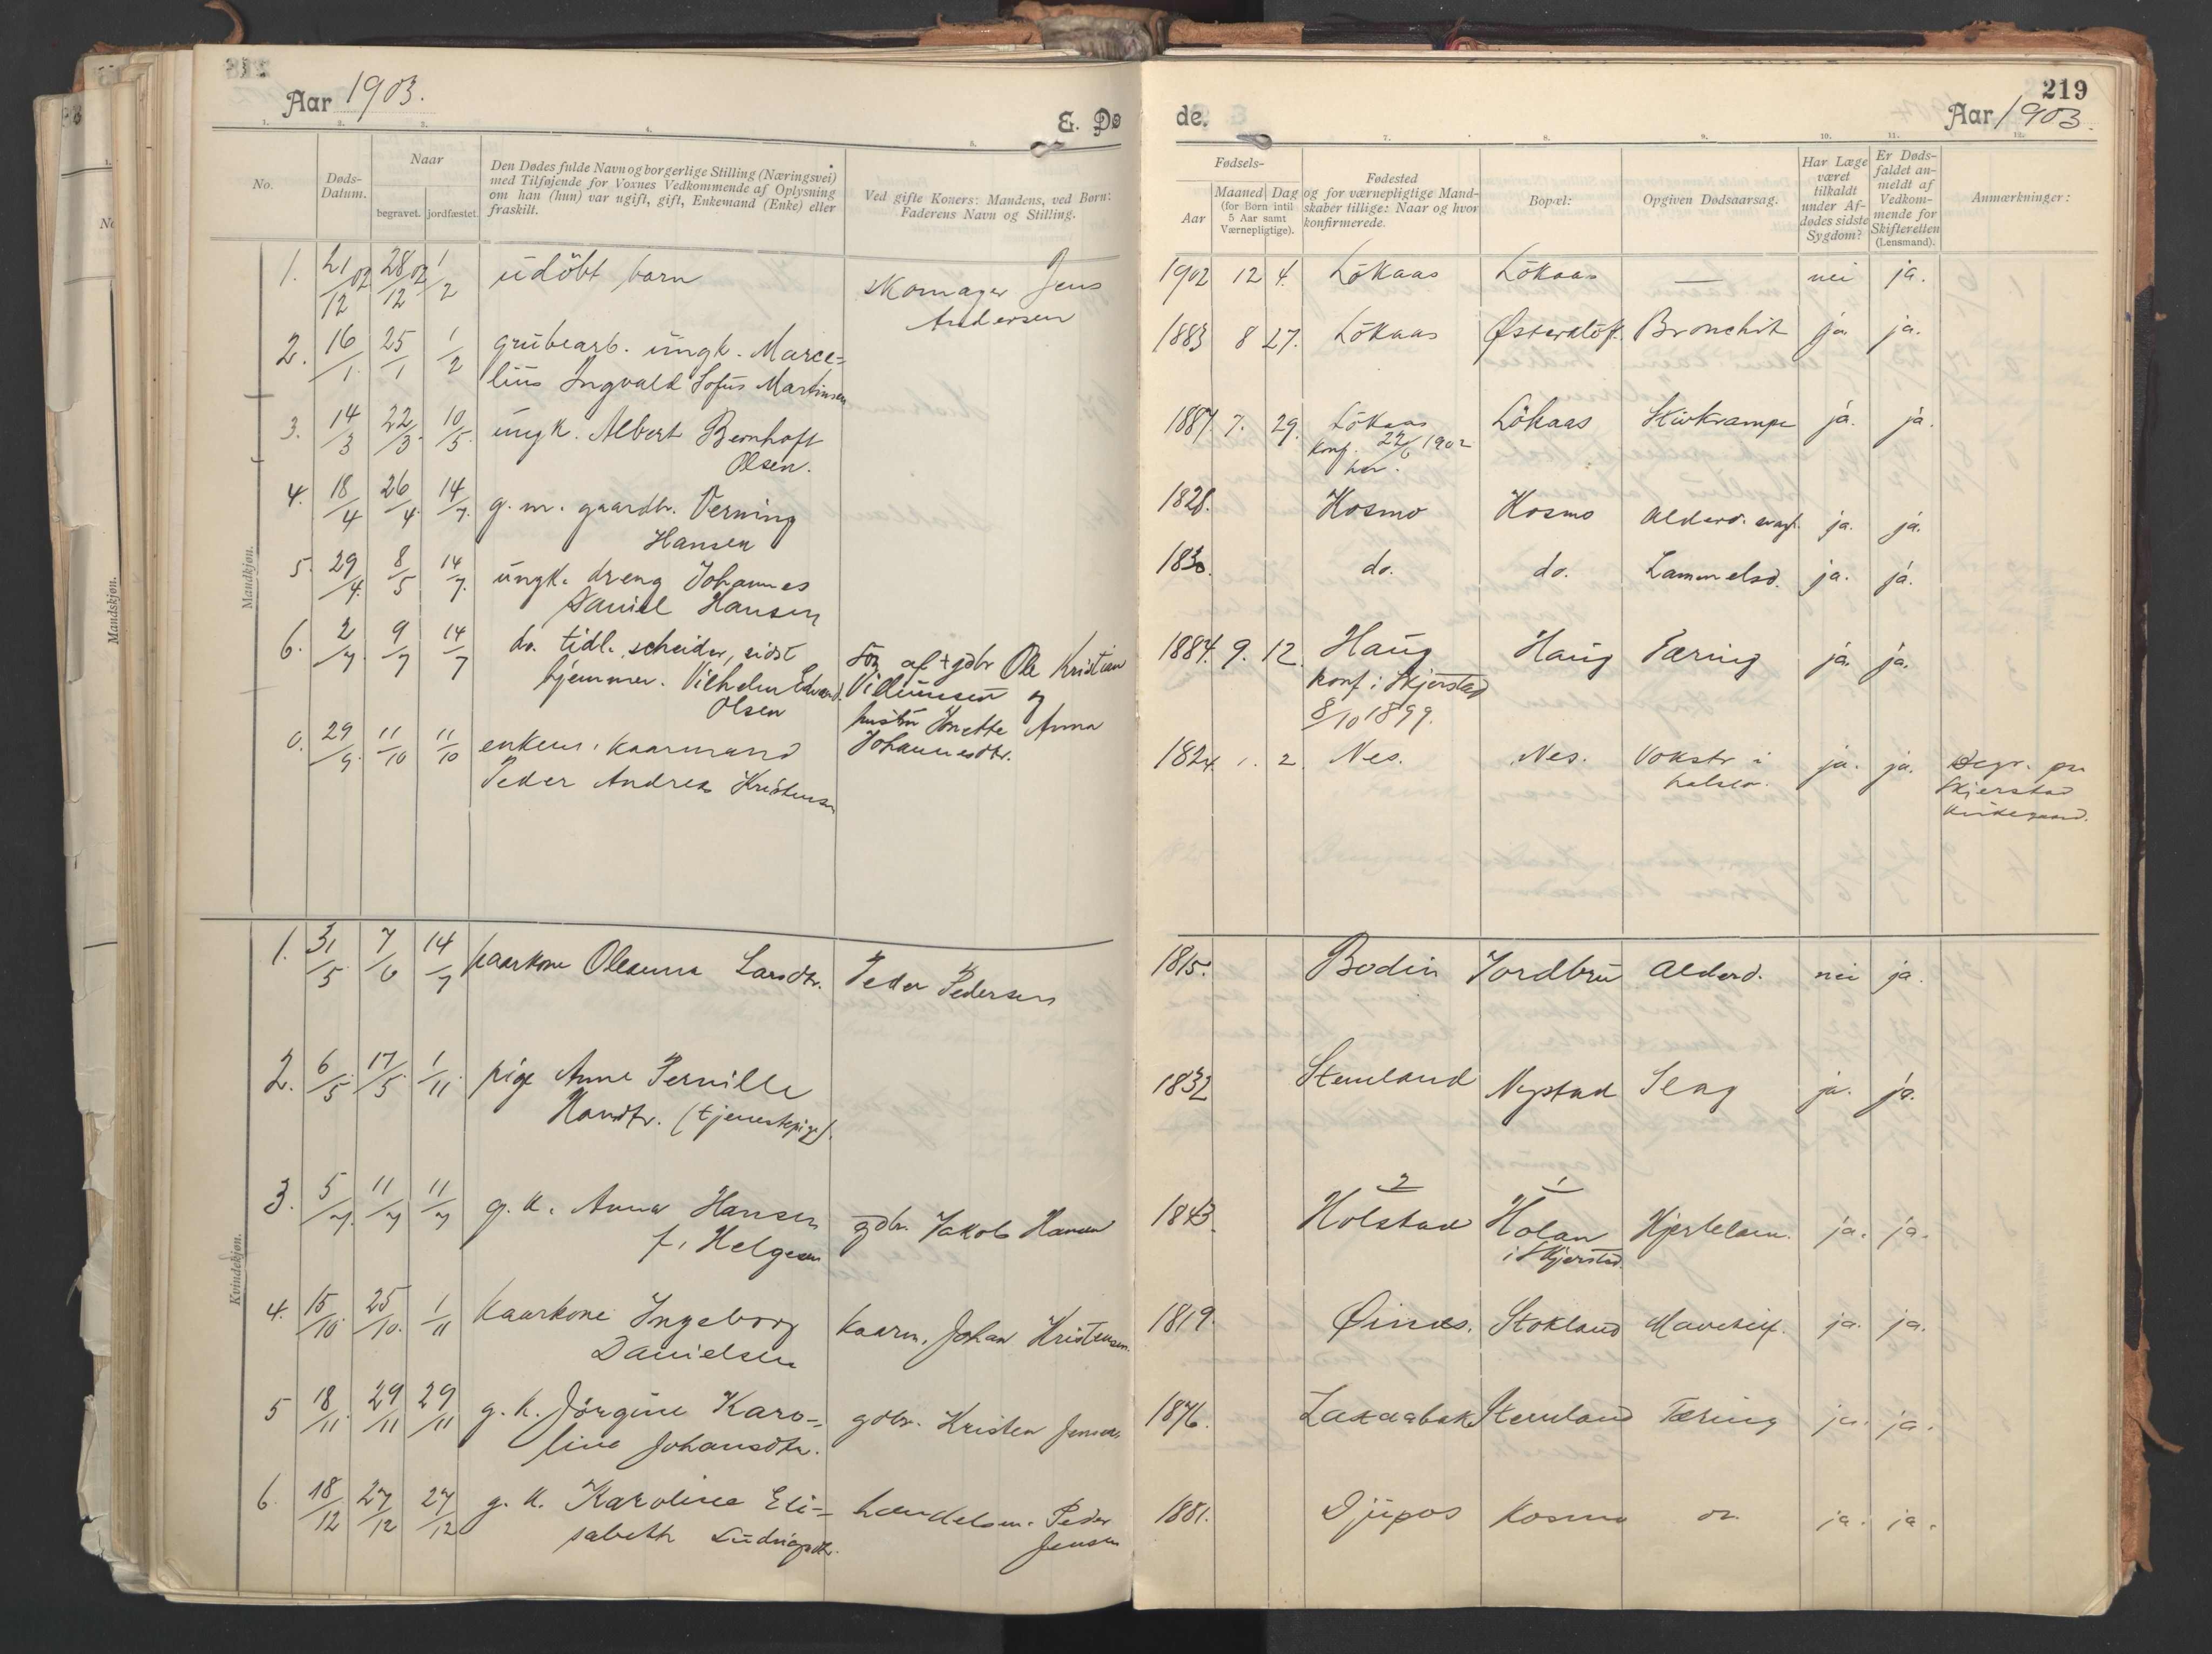 Aar 1903.
E. Dø
1. 2. 3. 4. 5.
No.
Døds-
Datum.
Naar
begravet. jordfæstet.
Den Dødes fulde Navn og borgerlige Stilling (Næringsvei)
med Tilføjende for Voxnes Vedkommende af Oplysning
om han (hun) var ugift, gift, Enkemand (Enke) eller
fraskilt.
Ved gifte Koners: Mandens, ved Børn:
Faderens Navn og Stilling.
Mandkjøn.
1. 21/12 02 28/12 02 1/2 udöbt barn skomager Jens
Andersen
2. 16/1 25/1 1/2 grubearb. ungk. Marce-
lius Ingvald Sofus Martinsen
3. 14/3 22/3 10/5 ungk. Albert Bernhoft
Olsen.
4. 18/4 26/4 14/7 g. m. gaardbr. Verning
Hansen
5. 29/4 8/5 14/7 ungk. dreng Johannes
Daniel Hansen
6. 2/7 9/7 14/7 do. tidl. scheider, sidst
hjemmev. Vilhelm Edvard
Olsen
Søn af + gdbr Ole Kristian
Villumsen og
hustru Anna
Johannesdtr.
0. 29/9 11/10 11/10 enkem. kaarmand
Peder Andreas Kristensen
Kvindekjøn.
1. 31/5 7/6 14/7 kaarkone Oleanna Larsdtr. Peder Pedersen
2. 6/5 17/5 1/11 pige Anne Pernille
Hansdtr. (tjenestepige).
3. 5/7 11/7 11/7 g. k. Anna Hansen
f. Helgesen
gdbr. Jakob Hansen
4. 15/10 25/10 1/11 kaarkone Ingeborg
Danielsen
kaarm. Johan Kristensen
5 18/11 29/11 29/11 g. k. Jörgine Karo-
line Johansdtr.
gdbr. Kristen Jensen
6. 18/12 27/12 27/12 g. k. Karoline Eli-
sabeth Ludvigsdtr.
handelsm. Peder
Jensen
219
de.
Aar 1903.
7. 8. 9. 10. 11. 12.
Fødsels-
Aar
Maaned Dag
(for Børn intil
5 Aar samt
Værnepligtige).
Fødested
og for værnepligtige Mand-
skaber tillige: Naar og hvor
konfirmerede.
Bopæl:
Opgiven Dødsaarsag.
Har Læge
været
tilkaldt
under Af-
dødes sidste
Sygdom?
Er Døds-
faldet an-
meldt af
Vedkom-
mende for
Skifteretten
(Lensmand).
Anmærkninger:
1902 12 4. Lökaas Lökaas — nei ja.
1883 8 27. Lökaas Østerklöft. Bronchit ja ja.
1887 7. 29. Lökaas Lökaas Stivkrampe ja. ja.
konf. 22/6 1902
her.
1828. Kosmo Kosmo Alderd. svagh. ja. ja.
1830. do. do. Lammelsd. ja. ja.
1884. 9. 12. Haug Haug Tæring ja. ja.
konf. i Skjerstad
8/10 1899.
1824. 1. 2. Nes. Nes. Vokstr i
halsen. ja. ja. Begr. paa
Skjerstad
kirkegaard.
1815. Bodin Jordbru Alderd. nei ja.
1832 Stemland Nystad Slag ja. ja.
1843. 2 Holstad 1 Holan
i Skjerstad. Hjertelam. ja. ja.
1819. Øines. Stokland ja. ja.
1876. Laxaabak Stemland Tæring ja. ja.
1881. Djupos Kosmo do. ja. ja.
Mandskjøn.